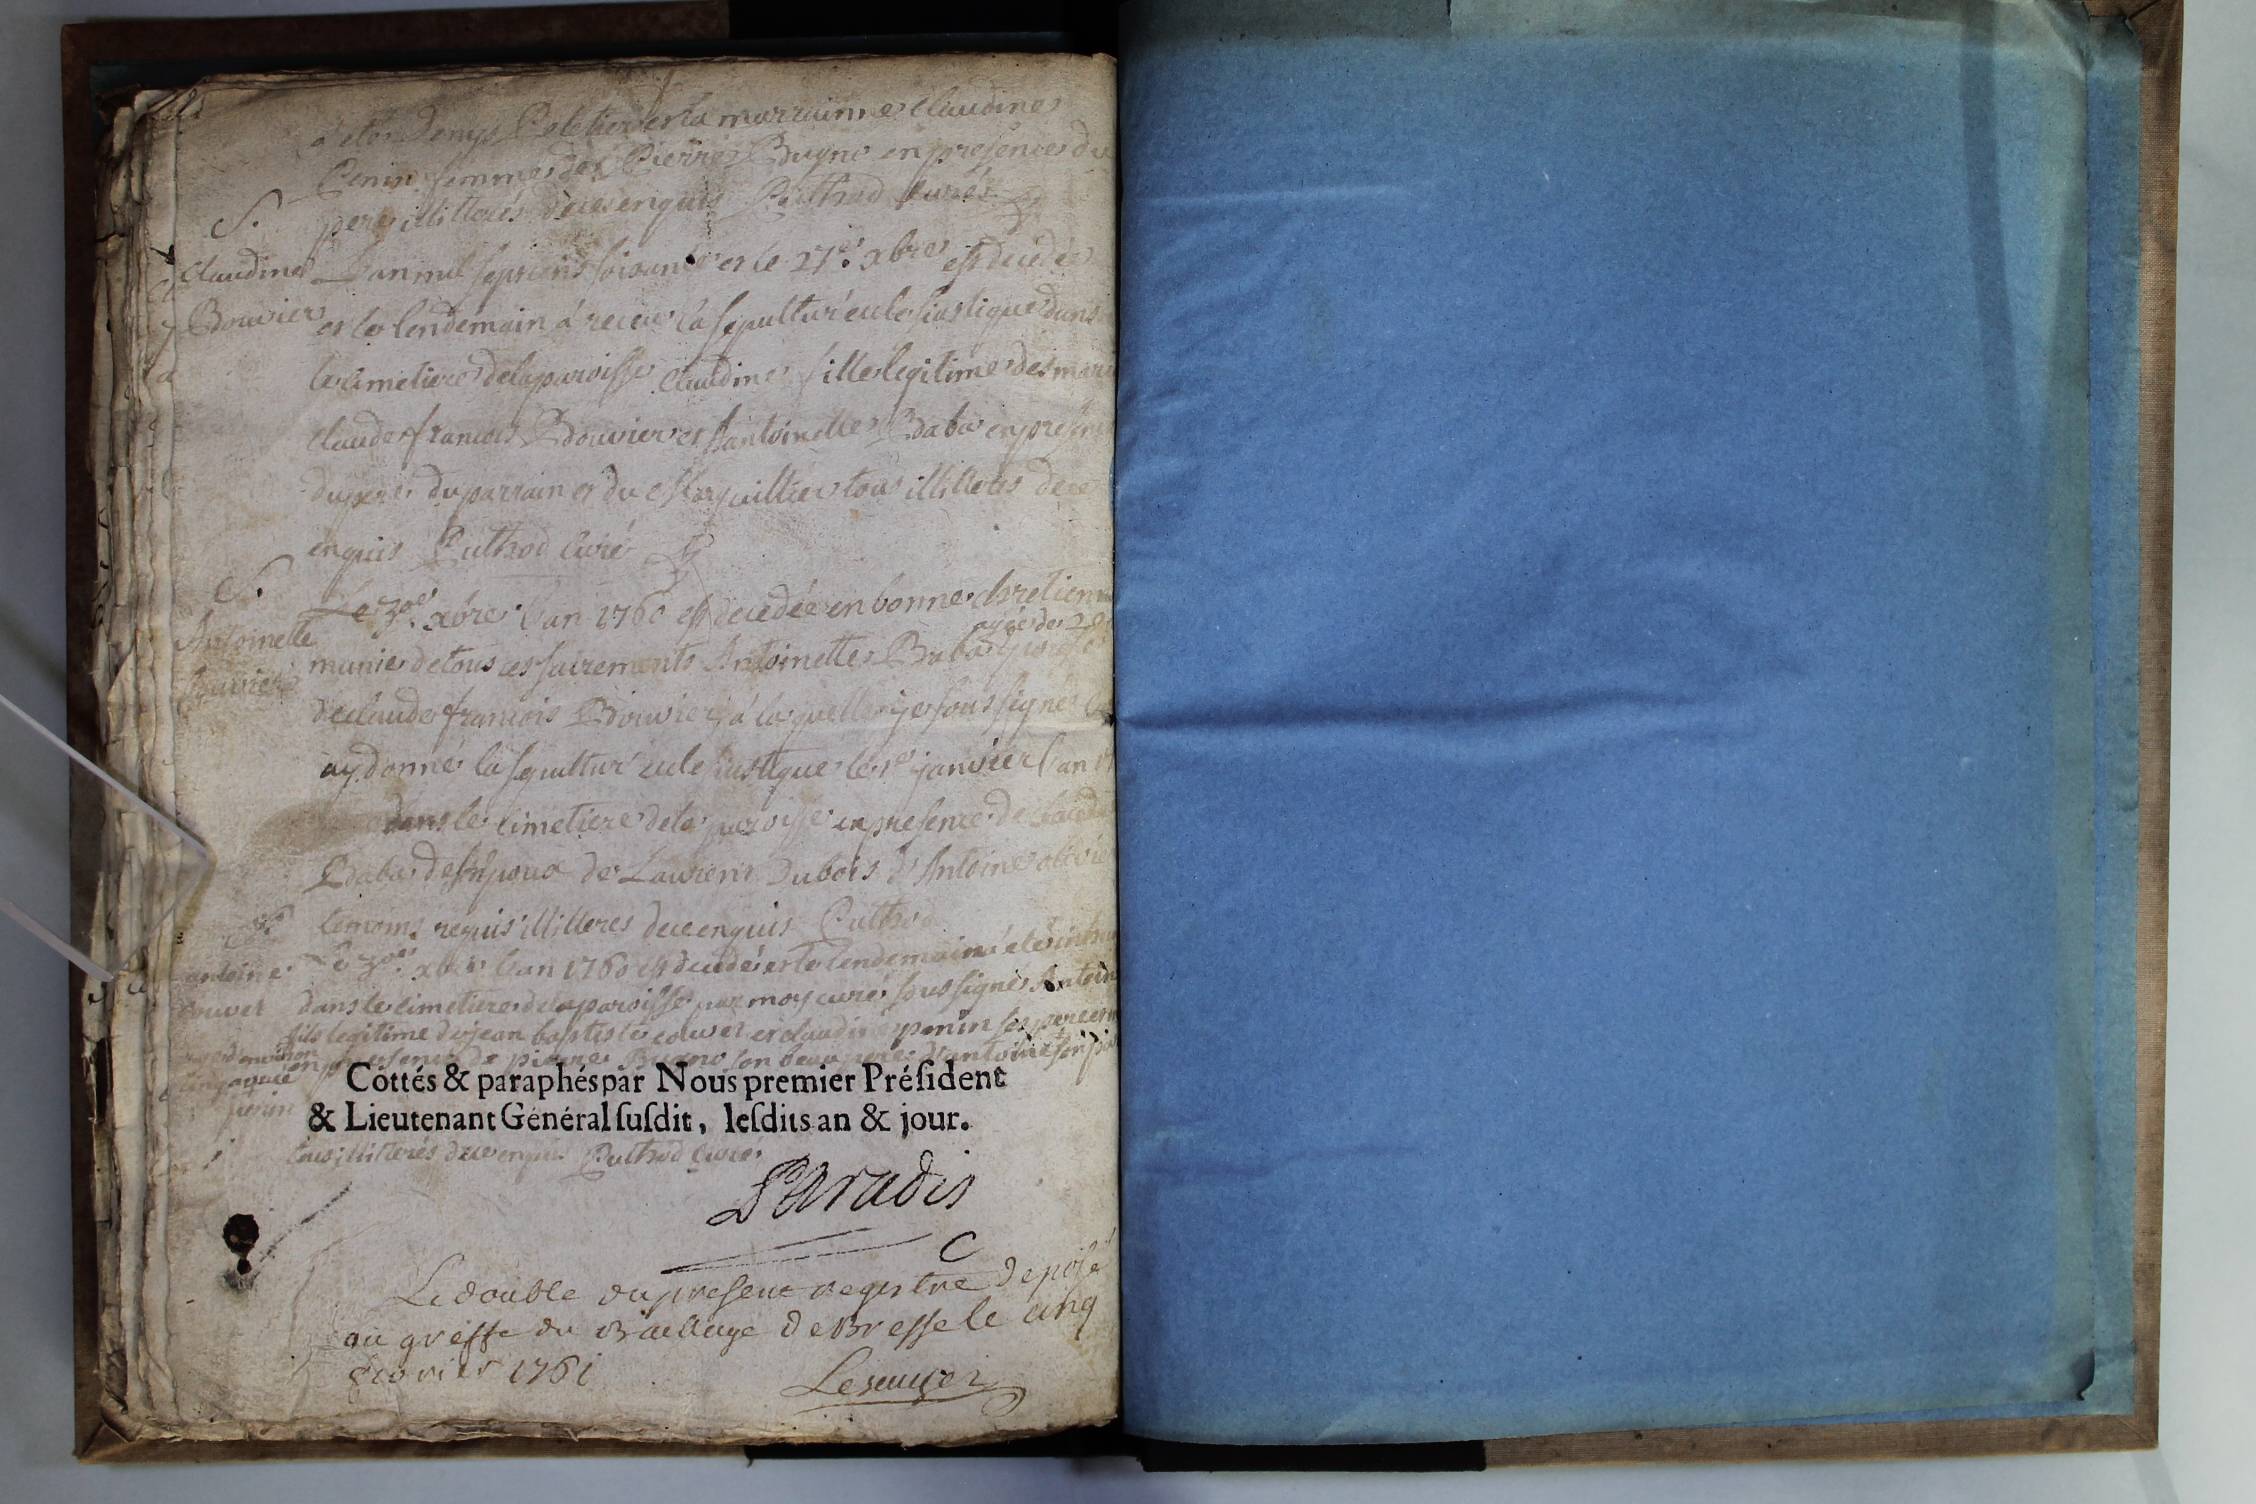 a eté Denys Peletier et la marrainne Claudine
Penin femme de Pierre Bugno en presence du
pere illitterés de ce enquis Puthod curé
S.
Claudine
Bouvier
L'an mil sept cens soixante et le 27e. xbre est decedée
et le lendemain á receu la sepultur' eclesiastique dans
le cimetiere de la paroisse Claudine fille legitime des
Claude francois Bouvier et Antoinette Baba en
du pere du parrain et du tous illitterés de ce
enquis Puthod curé
S.
Antoinette
Le 30e. xbre l'an 1760 est decedée en bonne chretienne
agée de
munie de tous ces sacrements Antoinette Baba
de Claude francois Bouvier á laquelle je soussigné
ay donné la sepultur' eclesiastique le 1er janvier l'an
dans le cimetiere de la paroisse en presence de
Baba de de Laurent Dubois d'Antoine
temoins requis illitteres de ce enquis Puthod
S.
antoine
Couvet
Le 30e. xbre l'an 1760 est decedé et le lendemain a eté
dans le cimetiere de la paroisse par moy curé soussigné Antoine
fils legitime de jean baptiste couvet et claudine penin ses pere et
en presence de pierre Bugno son beau pere d'antoine son
Cottés & paraphés par Nous premier Préſident
& Lieutenant Général ſuſdit, leſdits an & jour.
tous illitterés de ce enquis Puthod curé
Paradis
Le double du present registre deposé
au greffe du Bailliage de Bresse le cinq
fevrier 1761